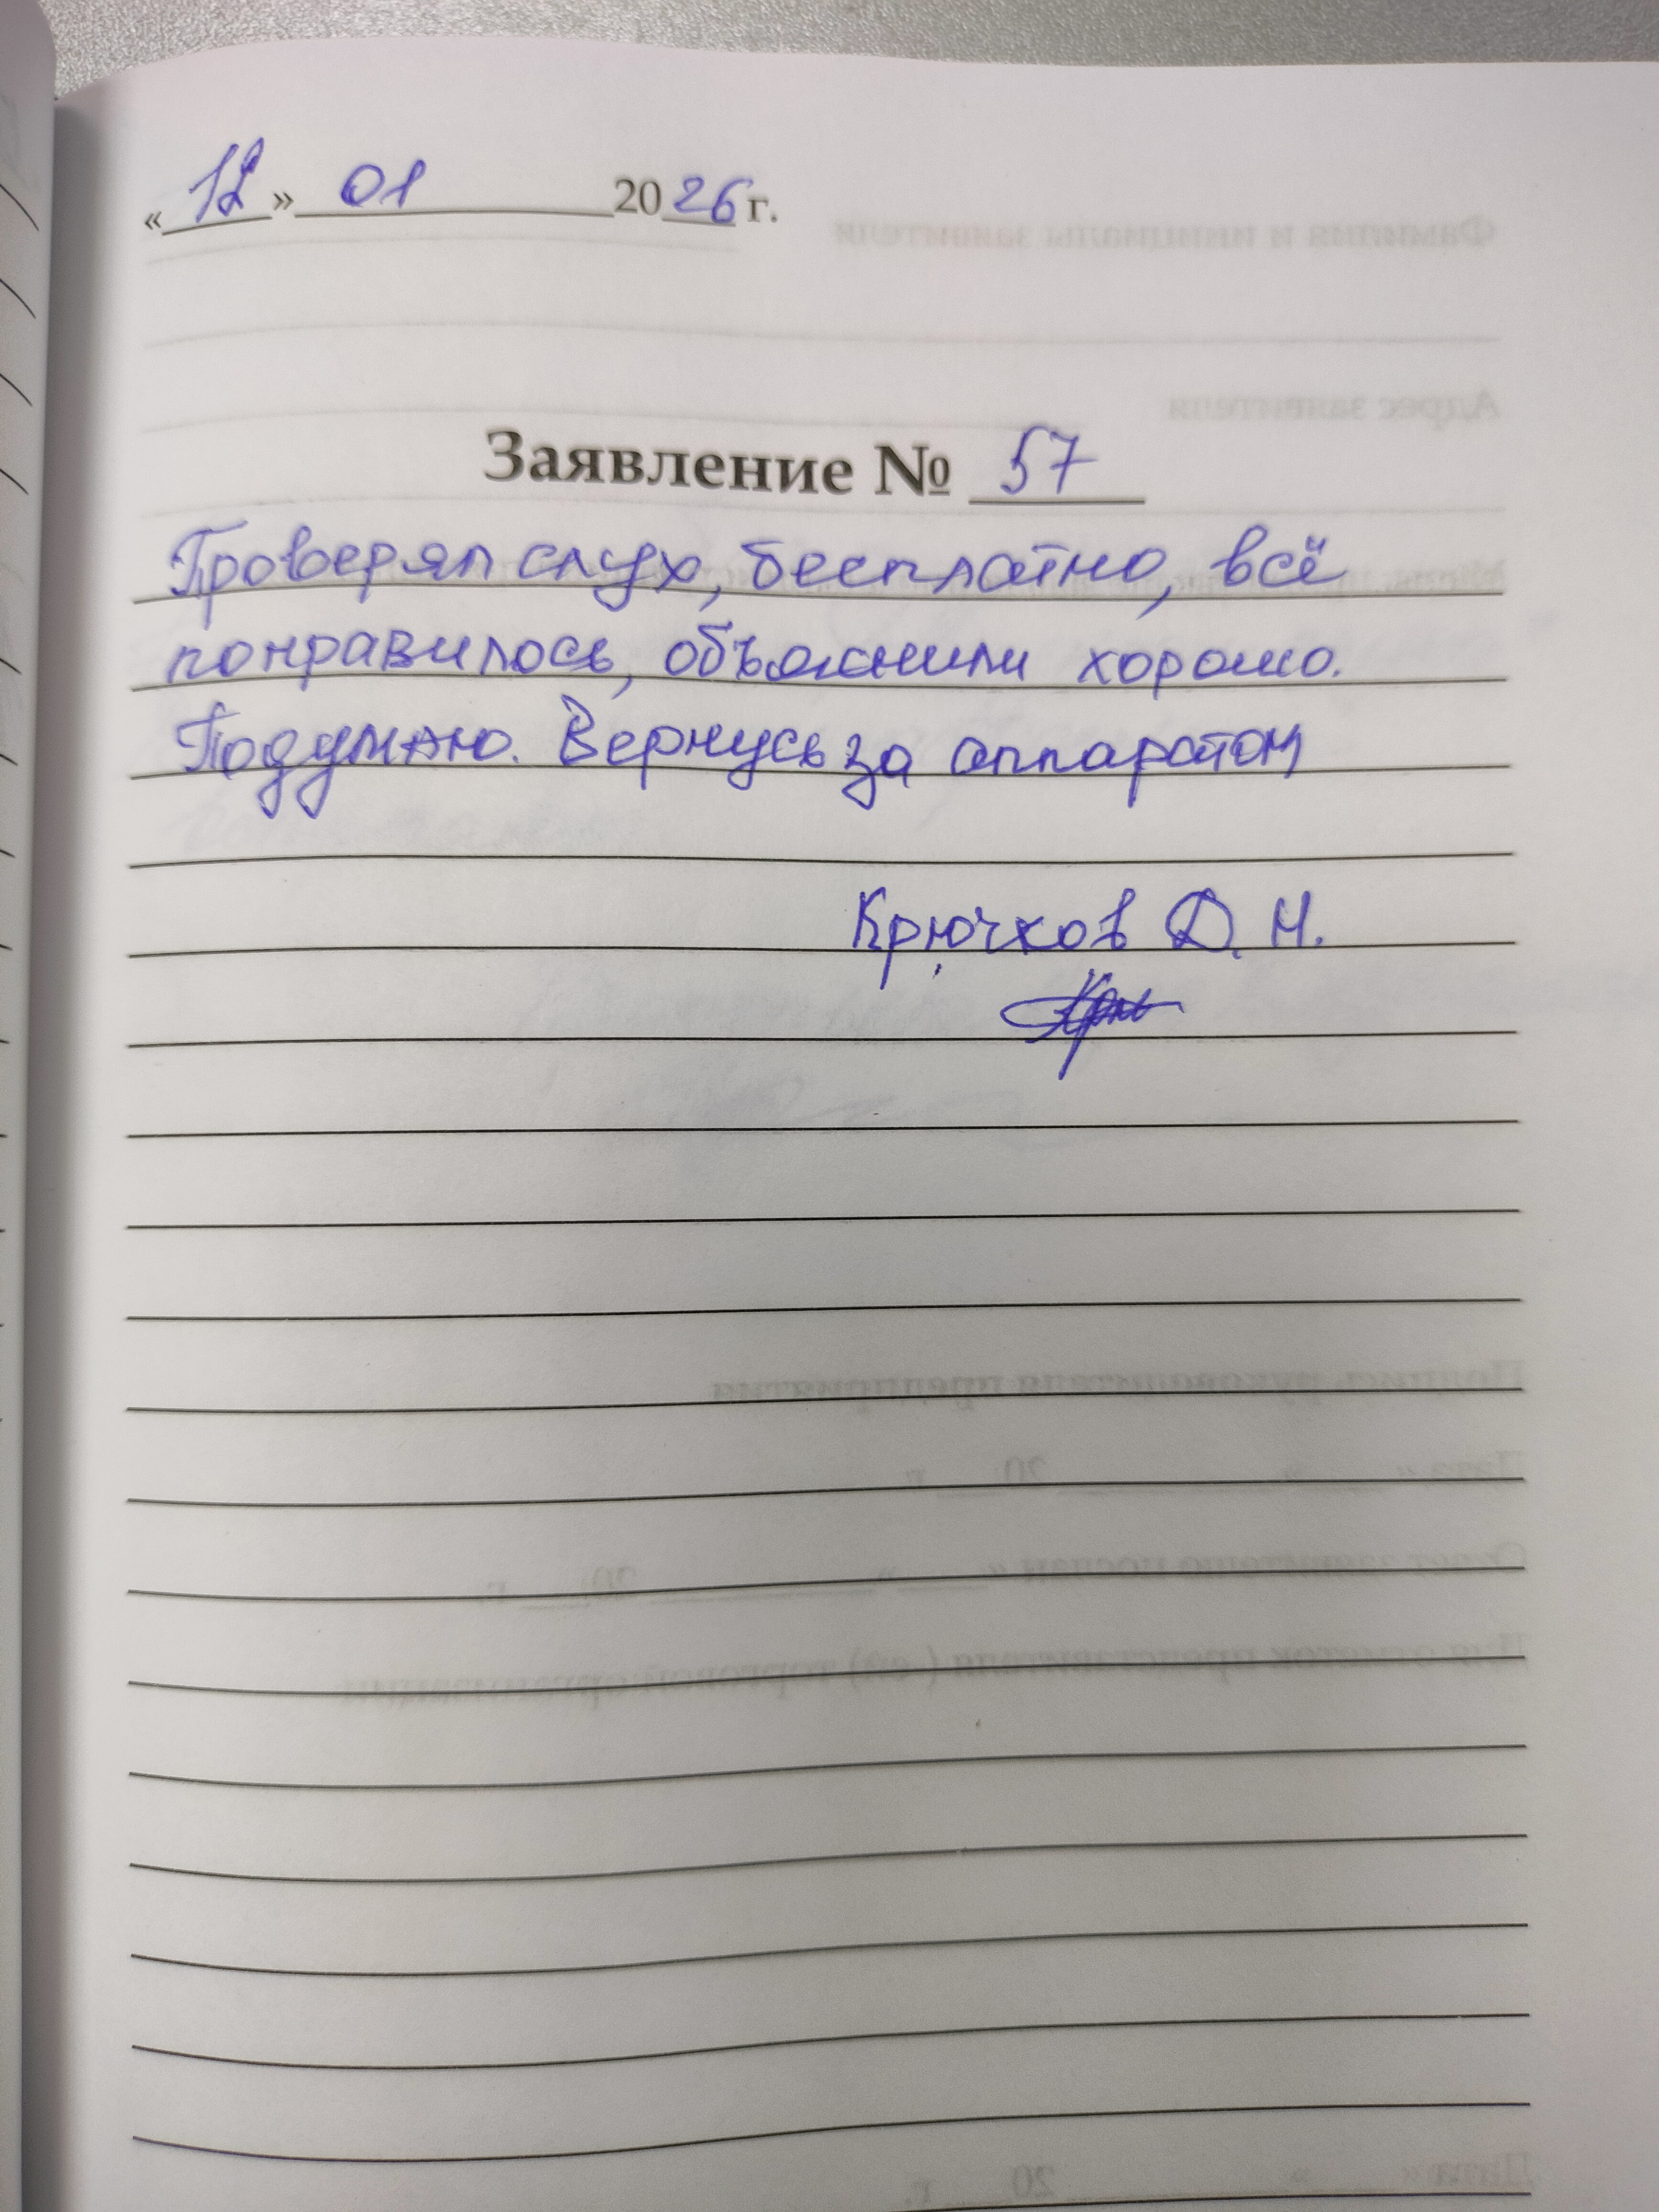 «12» 01 2026 г.
Заявление № 57
Проверял слух, бесплатно, всё
понравилось, объяснили хорошо.
Подумаю. Вернусь за аппаратом
Крючков Д. Н.